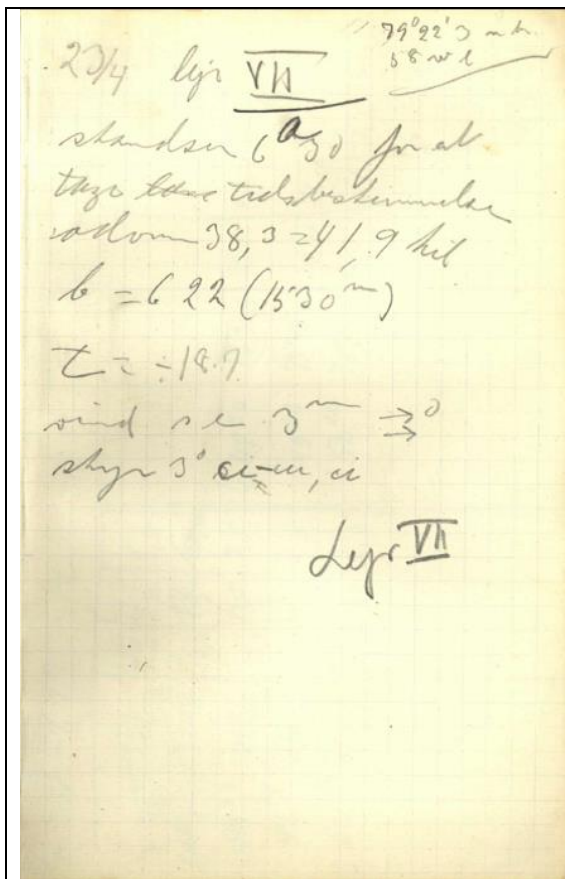 79°22'3 n br.
58 w l
23/4 lejr VII
standser 6 a 30 for at
tage tidsbestemmelse
odom 38,3 = 41,9 kil
b = 622 (1530 m)
t = ÷18.7
vind se 3 m
skyer 3° ci-cu, ci
Lejr VII